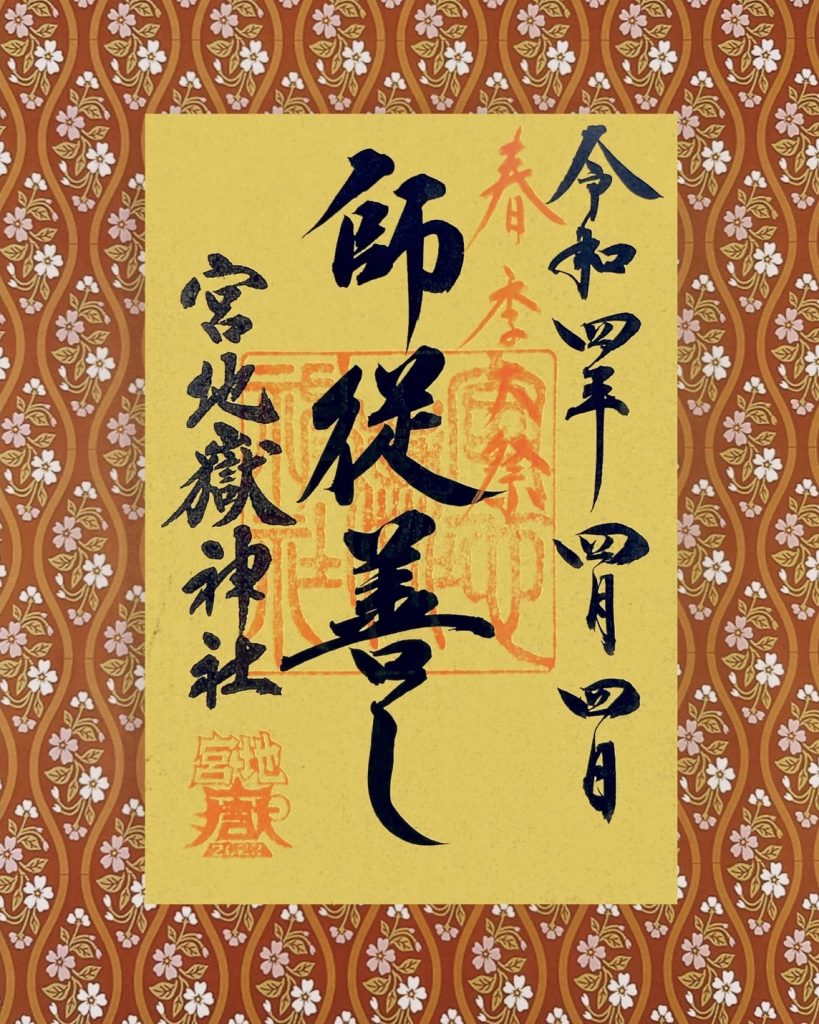 令和四年四月四日
春季大祭
師従善し
宮地嶽神社
宮地嶽神社
宮地
嶽
2022